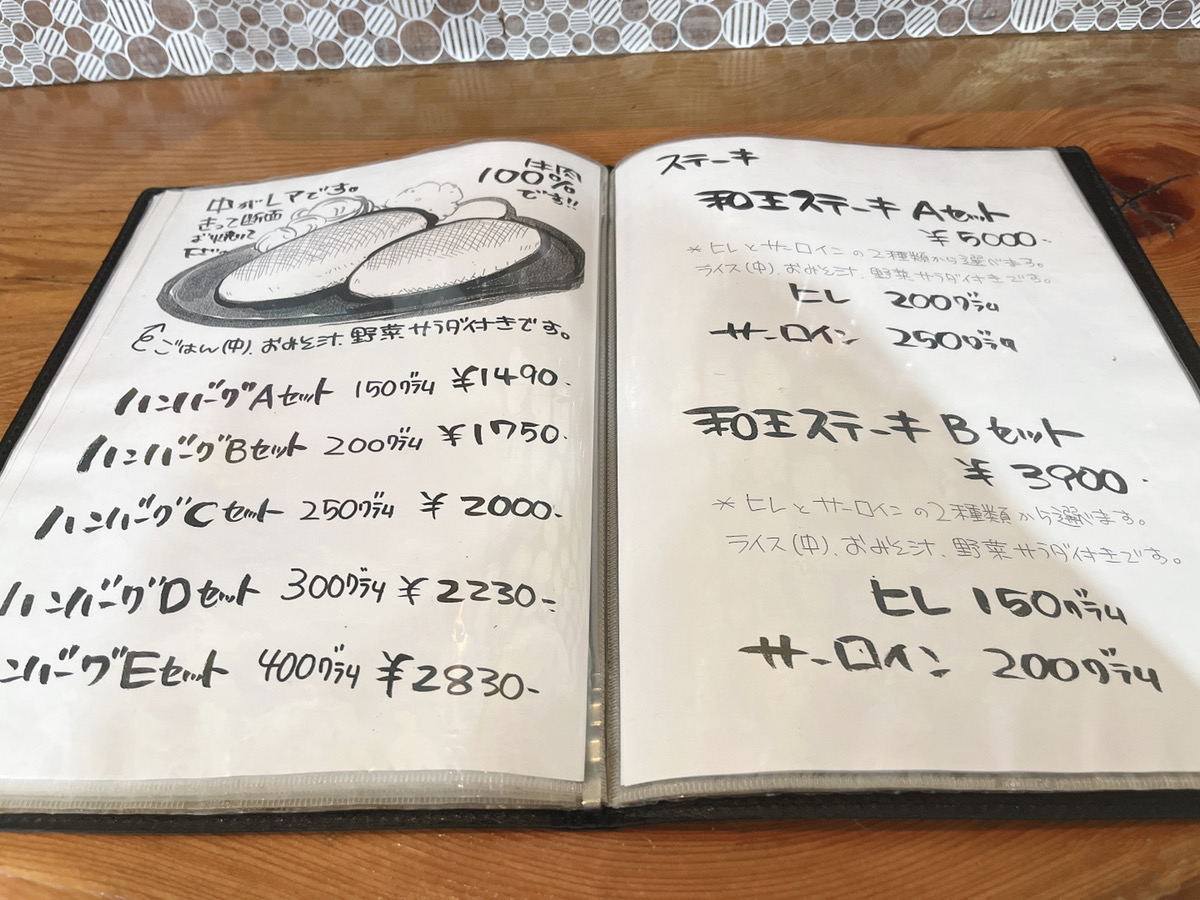 牛肉
100%
です!!
中がレアです。
きって断面
お焼いて
全ごはん(中)、おみそ汁、野菜サラダ付きです。
ハンバーグAセット 150グラム ¥1490-
ハンバーグBセット 200グラム ¥1750-
ハンバーグCセット 250グラム ¥2000-
ハンバーグDセット 300グラム ¥2230-
ンバーグEセット 400グラム ¥2830-
ステーキ
和王ステーキ Aセット
¥5000-
*ヒレとサーロインの2種類から選べます。
ライス(中)、おみそ汁、野菜サラダ付きです。
ヒレ 200グラム
サーロイン 250グラム
和王ステーキ Bセット
¥3900-
*ヒレとサーロインの2種類から選べます。
ライス(中)、おみそ汁、野菜サラダ付きです。
ヒレ 150グラム
サーロイン 200グラム